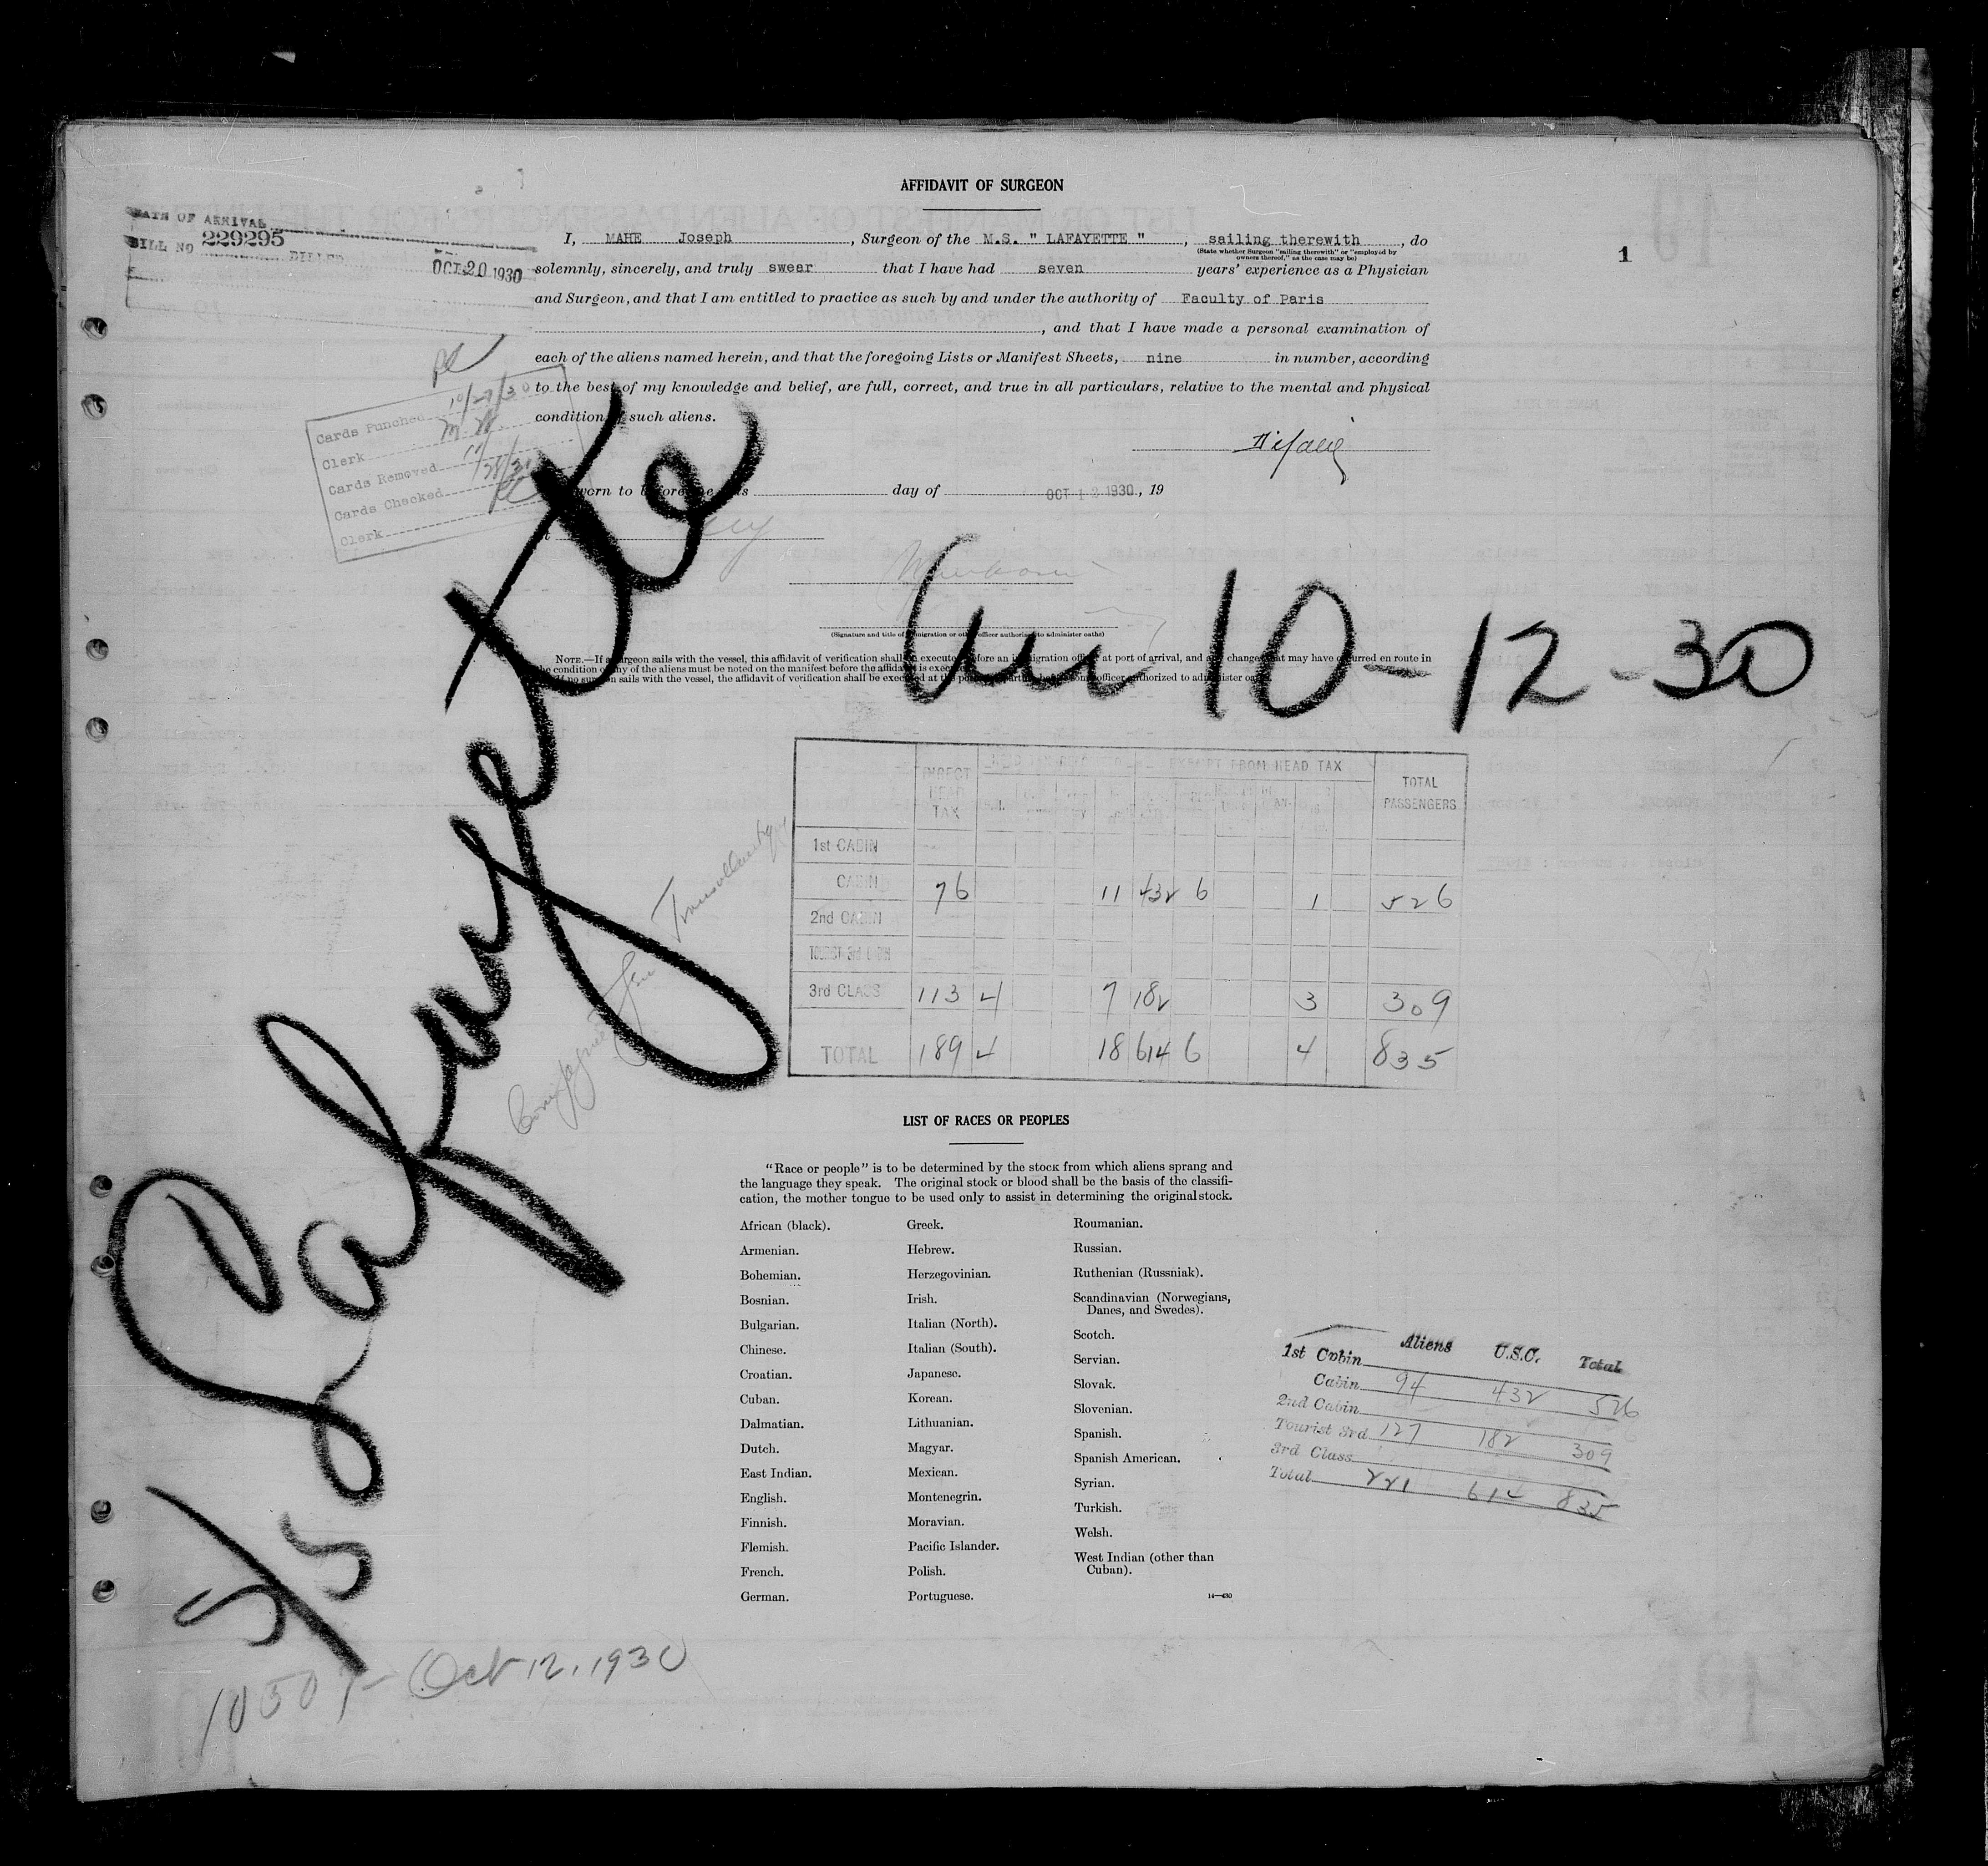 AFFIDAVIT OF SURGEON
DATE OF ARRIVAL
BILL No 229295
BILLED OCT 20 1930
1
I, MAHE Joseph, Surgeon of the M.S. " LAFAYETTE ", sailing therewith, do
(State whether Surgeon "sailing therewith" or "employed by
owners thereof," as the case may be)
solemnly, sincerely, and truly swear that I have had seven years' experience as a Physician
and Surgeon, and that I am entitled to practice as such by and under the authority of Faculty of Paris
, and that I have made a personal examination of
each of the aliens named herein, and that the foregoing Lists or Manifest Sheets, nine in number, according
to the best of my knowledge and belief, are full, correct, and true in all particulars, relative to the mental and physical
condition of such aliens.
Cards Punched 10/27/30
Clerk
Cards Removed
Cards Checked
Clerk
Sworn to before me this day of OCT 12 1930, 19
(Signature and title of immigration or other officer authorized to administer oaths)
NOTE.—If a surgeon sails with the vessel, this affidavit of verification shall be executed before an immigration officer at port of arrival, and any change that may have occurred en route in
the condition of any of the aliens must be noted on the manifest before the affidavit is executed.
If no surgeon sails with the vessel, the affidavit of verification shall be executed at the port of departure before some officer authorized to administer oaths.
Arr 10-12-30
S/S Lafayette
Compagnie Gen Transatlantique
DIRECT HEAD TAX EXEMPT FROM HEAD TAX TOTAL PASSENGERS
1st CABIN
CABIN 76 11 432 6 1 526
2nd CABIN
TOURIST 3rd CABIN
3rd CLASS 113 4 7 182 3 309
TOTAL 189 4 18 614 6 4 835
LIST OF RACES OR PEOPLES
"Race or people" is to be determined by the stock from which aliens sprang and
the language they speak. The original stock or blood shall be the basis of the classifi-
cation, the mother tongue to be used only to assist in determining the original stock.
African (black).
Armenian.
Bohemian.
Bosnian.
Bulgarian.
Chinese.
Croatian.
Cuban.
Dalmatian.
Dutch.
East Indian.
English.
Finnish.
Flemish.
French.
German.
Greek.
Hebrew.
Herzegovinian.
Irish.
Italian (North).
Italian (South).
Japanese.
Korean.
Lithuanian.
Magyar.
Mexican.
Montenegrin.
Moravian.
Pacific Islander.
Polish.
Portuguese.
Roumanian.
Russian.
Ruthenian (Russniak).
Scandinavian (Norwegians,
Danes, and Swedes).
Scotch.
Servian.
Slovak.
Slovenian.
Spanish.
Spanish American.
Syrian.
Turkish.
Welsh.
West Indian (other than
Cuban).
14—430
Aliens U.S.C. Total
1st Cabin
Cabin 94 432 526
2nd Cabin
Tourist 3rd 127 182 309
3rd Class
Total 221 614 835
Oct 12, 1930